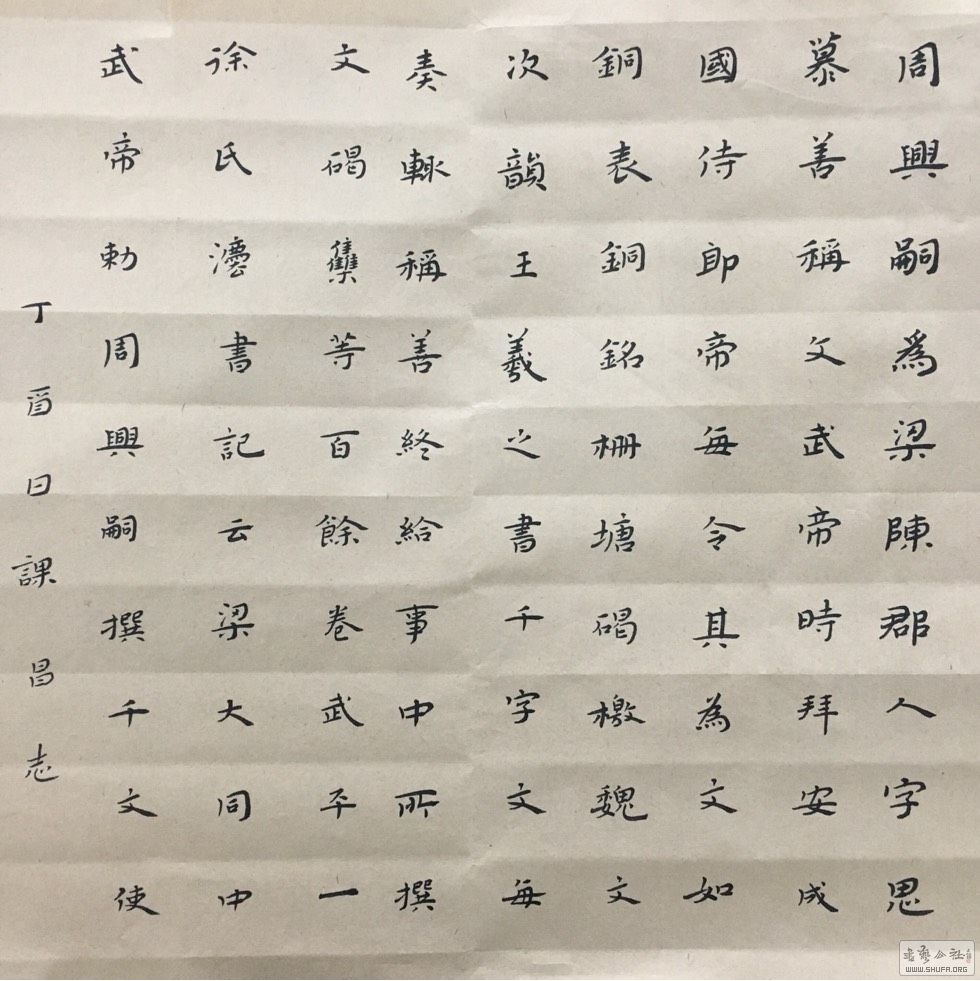 周興嗣為梁陳郡人字思
慕善稱文武帝時拜安成
國侍郎帝每令其為文如
銅表銅銘柵塘碣檄魏文
次韻王羲之書千字文每
奏輒稱善終給事中所撰
文碣集等百餘卷武平一
徐氏灋書記云梁大同中
武帝勅周興嗣撰千文使
丁酉日課昌志
WWW.SHUFA.ORG